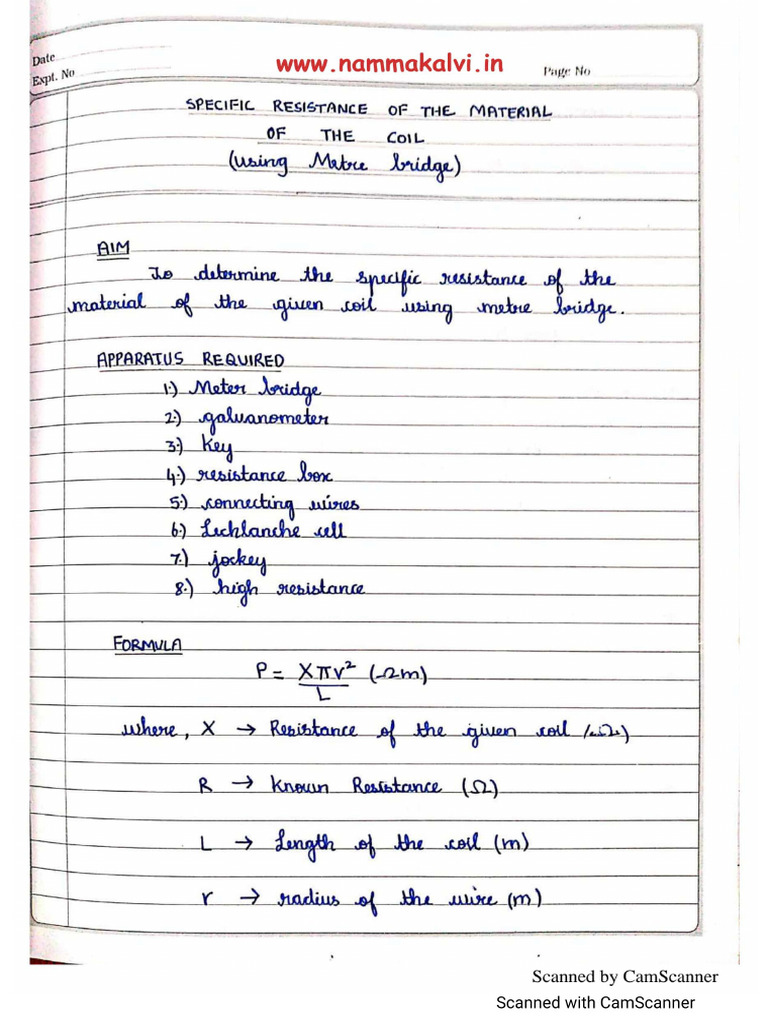 Date
Expt. No
www.nammakalvi.in
Page No
SPECIFIC RESISTANCE OF THE MATERIAL
OF THE COIL
(using Metre bridge)
AIM
To determine the specific resistance of the
material of the given coil using metre bridge.
APPARATUS REQUIRED
1.) Meter bridge
2.) galvanometer
3.) Key
4.) resistance box
5.) connecting wires
6.) Lechlanche cell
7.) jockey
8.) high resistance
FORMULA
P = Xπr² (Ωm)
L
where, X → Resistance of the given coil (Ω)
R → Known Resistance (Ω)
L → Length of the coil (m)
r → radius of the wire (m)
Scanned by CamScanner
Scanned with CamScanner